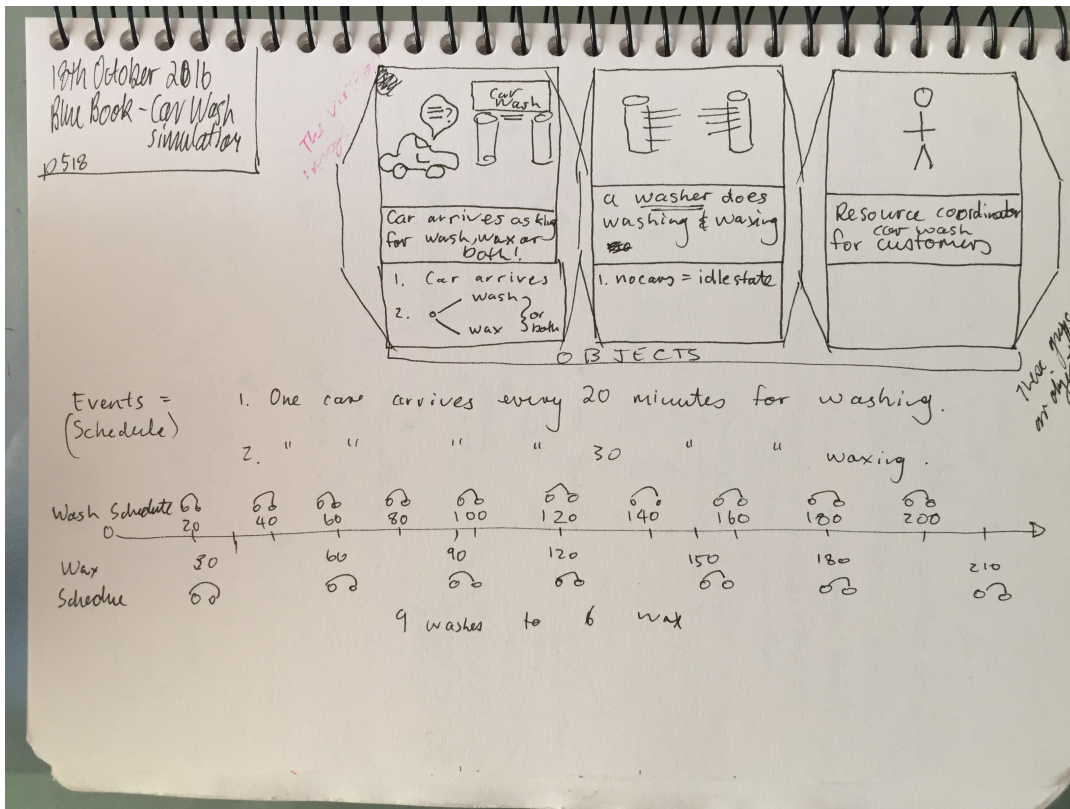 18th October 2016
Blue Book - Car Wash
simulation
p518
The
Car
Wash
?
Car arrives asking
for wash, wax or
both!
1. Car arrives
2.
wash
wax
or
both
a washer does
washing & waxing
1. no cars = idle state
Resource coordinator
car wash
for customers
OBJECTS
These guys
Events =
(Schedule)
1. One care arrives every 20 minutes for washing.
2. " " " " 30 " " waxing.
Wash Schedule
0 20 40 60 80 100 120 140 160 180 200
30 60 90 120 150 180 210
Wax
Schedue
9 washes to 6 wax